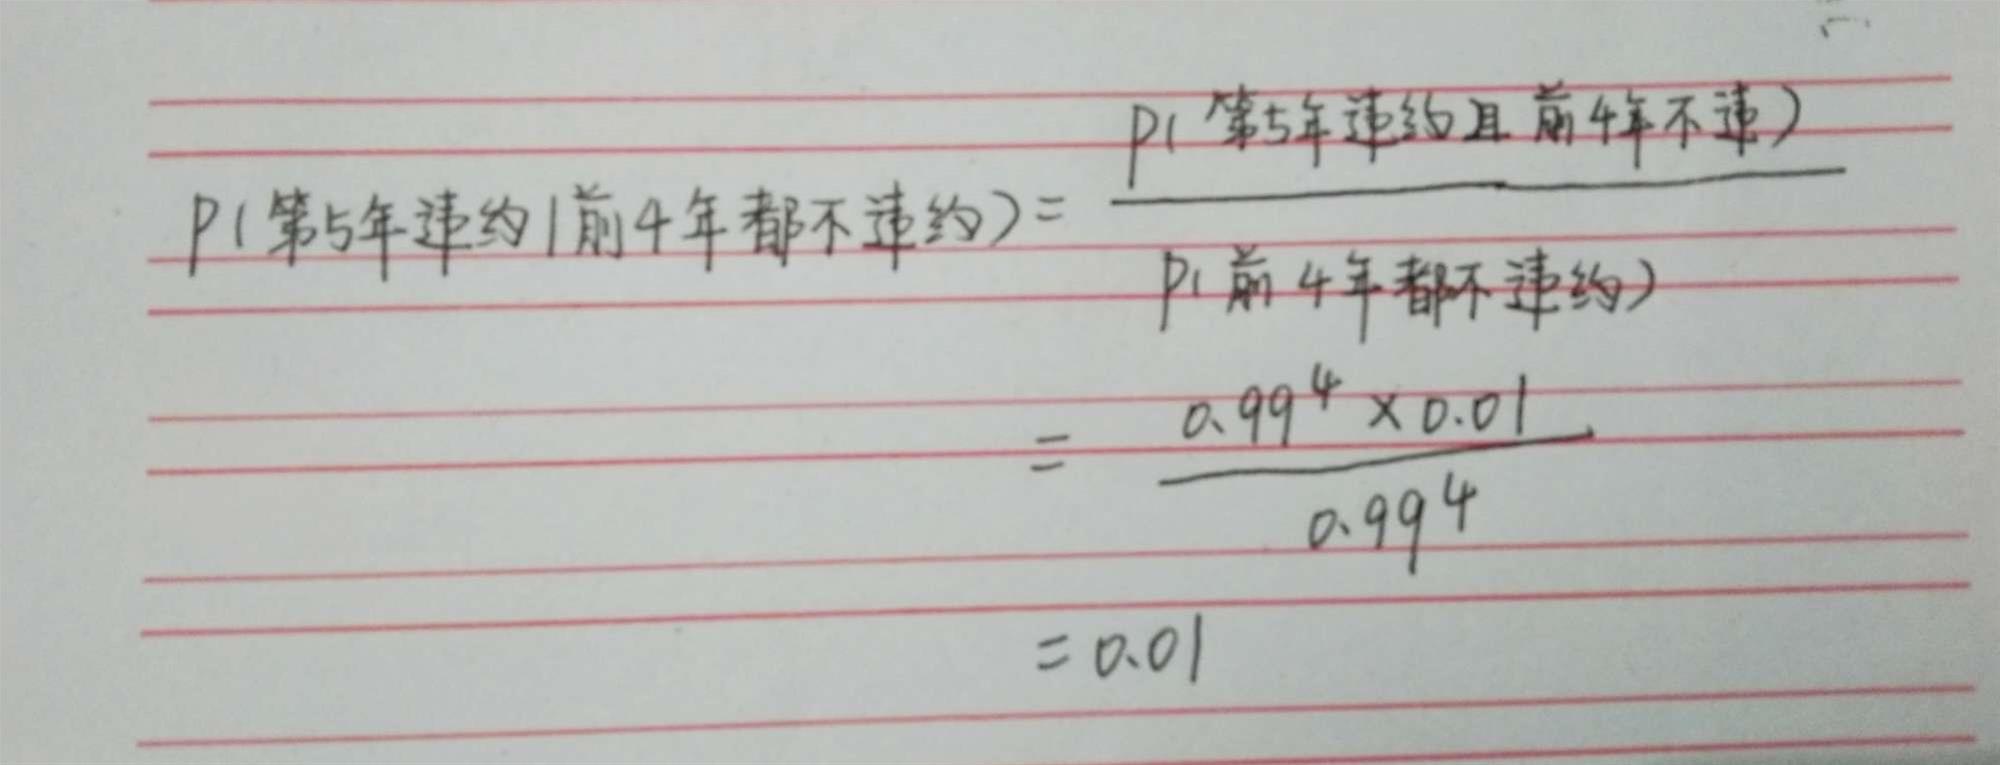 P(第5年违约且前4年不违)
P(第5年违约|前4年都不违约)=
P(前4年都不违约)
= 0.99⁴×0.01
0.99⁴
=0.01